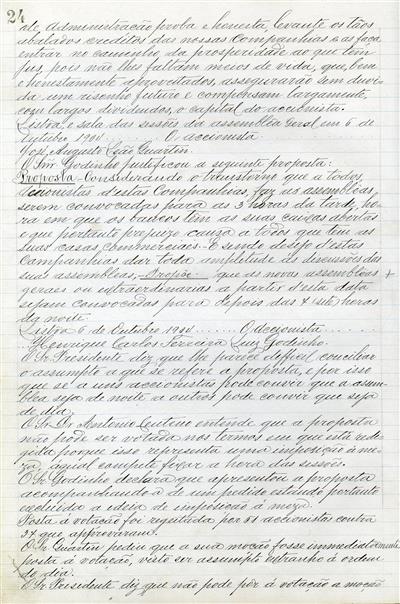 24
de Administração proba e honesta, levante os tãos
abalados creditos das nossas Companhias e as faça
entrar no caminho da prosperidade ao que tem
jus pois não lhe faltam meios de vida, que, bem
e honestamente aproveitados, assegurarão sem duvi-
da um risonho futuro e compensam largamente,
com largos dividendos, o capital do accionista.
Lisboa, e sala das sessões da assemblêa Geral em 6 de
Outubro 1904. O accionista
José Augusto Leão Quartin.
O Snr. Godinho justificou a seguinte proposta:
Proposta - Considerando o transtorno que a todos,
accionistas d'estas Companhias, faz as assemblêas
serem convocadas para as 3 horas da tarde, ho-
ra em que os bancos têm as suas caixas abertas
e que portanto prejuizo causa a todos que tem as
suas casas commerciaes. E sendo desejo d'estas
Companhias dar toda amplitude ás discussões das
suas assemblêas, - Propõe - que as novas assemblêas
geraes ou extraordinarias a partir d'esta data
sejam convocadas para depois das 7 (sete) horas
da noite.
Lisboa 6 de Outubro 1904. . . . . . O accionista
Henrique Carlos Ferreira Luiz Godinho.
O Sr. Presidente diz que lhe parece difficil conciliar
o assumpto a que se refere a proposta, e por isso
que se a uns accionistas pode convir que a assem-
blêa seja de noite a outros pode convir que seja
de dia.
O Sr. Dr. Antonio Centeno entende que a proposta
não pode ser votada nos termos em que está redi-
gida porque isso representa uma imposição á me-
za, á qual compete fixar a hora das sessões.
O Sr. Godinho declara que apresentou a proposta
acompanhando-a de um pedido estando portanto
excluida a ideia de imposição á meza.
Posta á votação foi regeitada por 51 accionistas contra
27 que approvaram.
O Sr. Quartin pediu que a sua moção fosse immediatamente
posta á votação, visto ser assumpto extranho á ordem
do dia.
O Sr. Presidente diz que não pode pôr á votação a moção